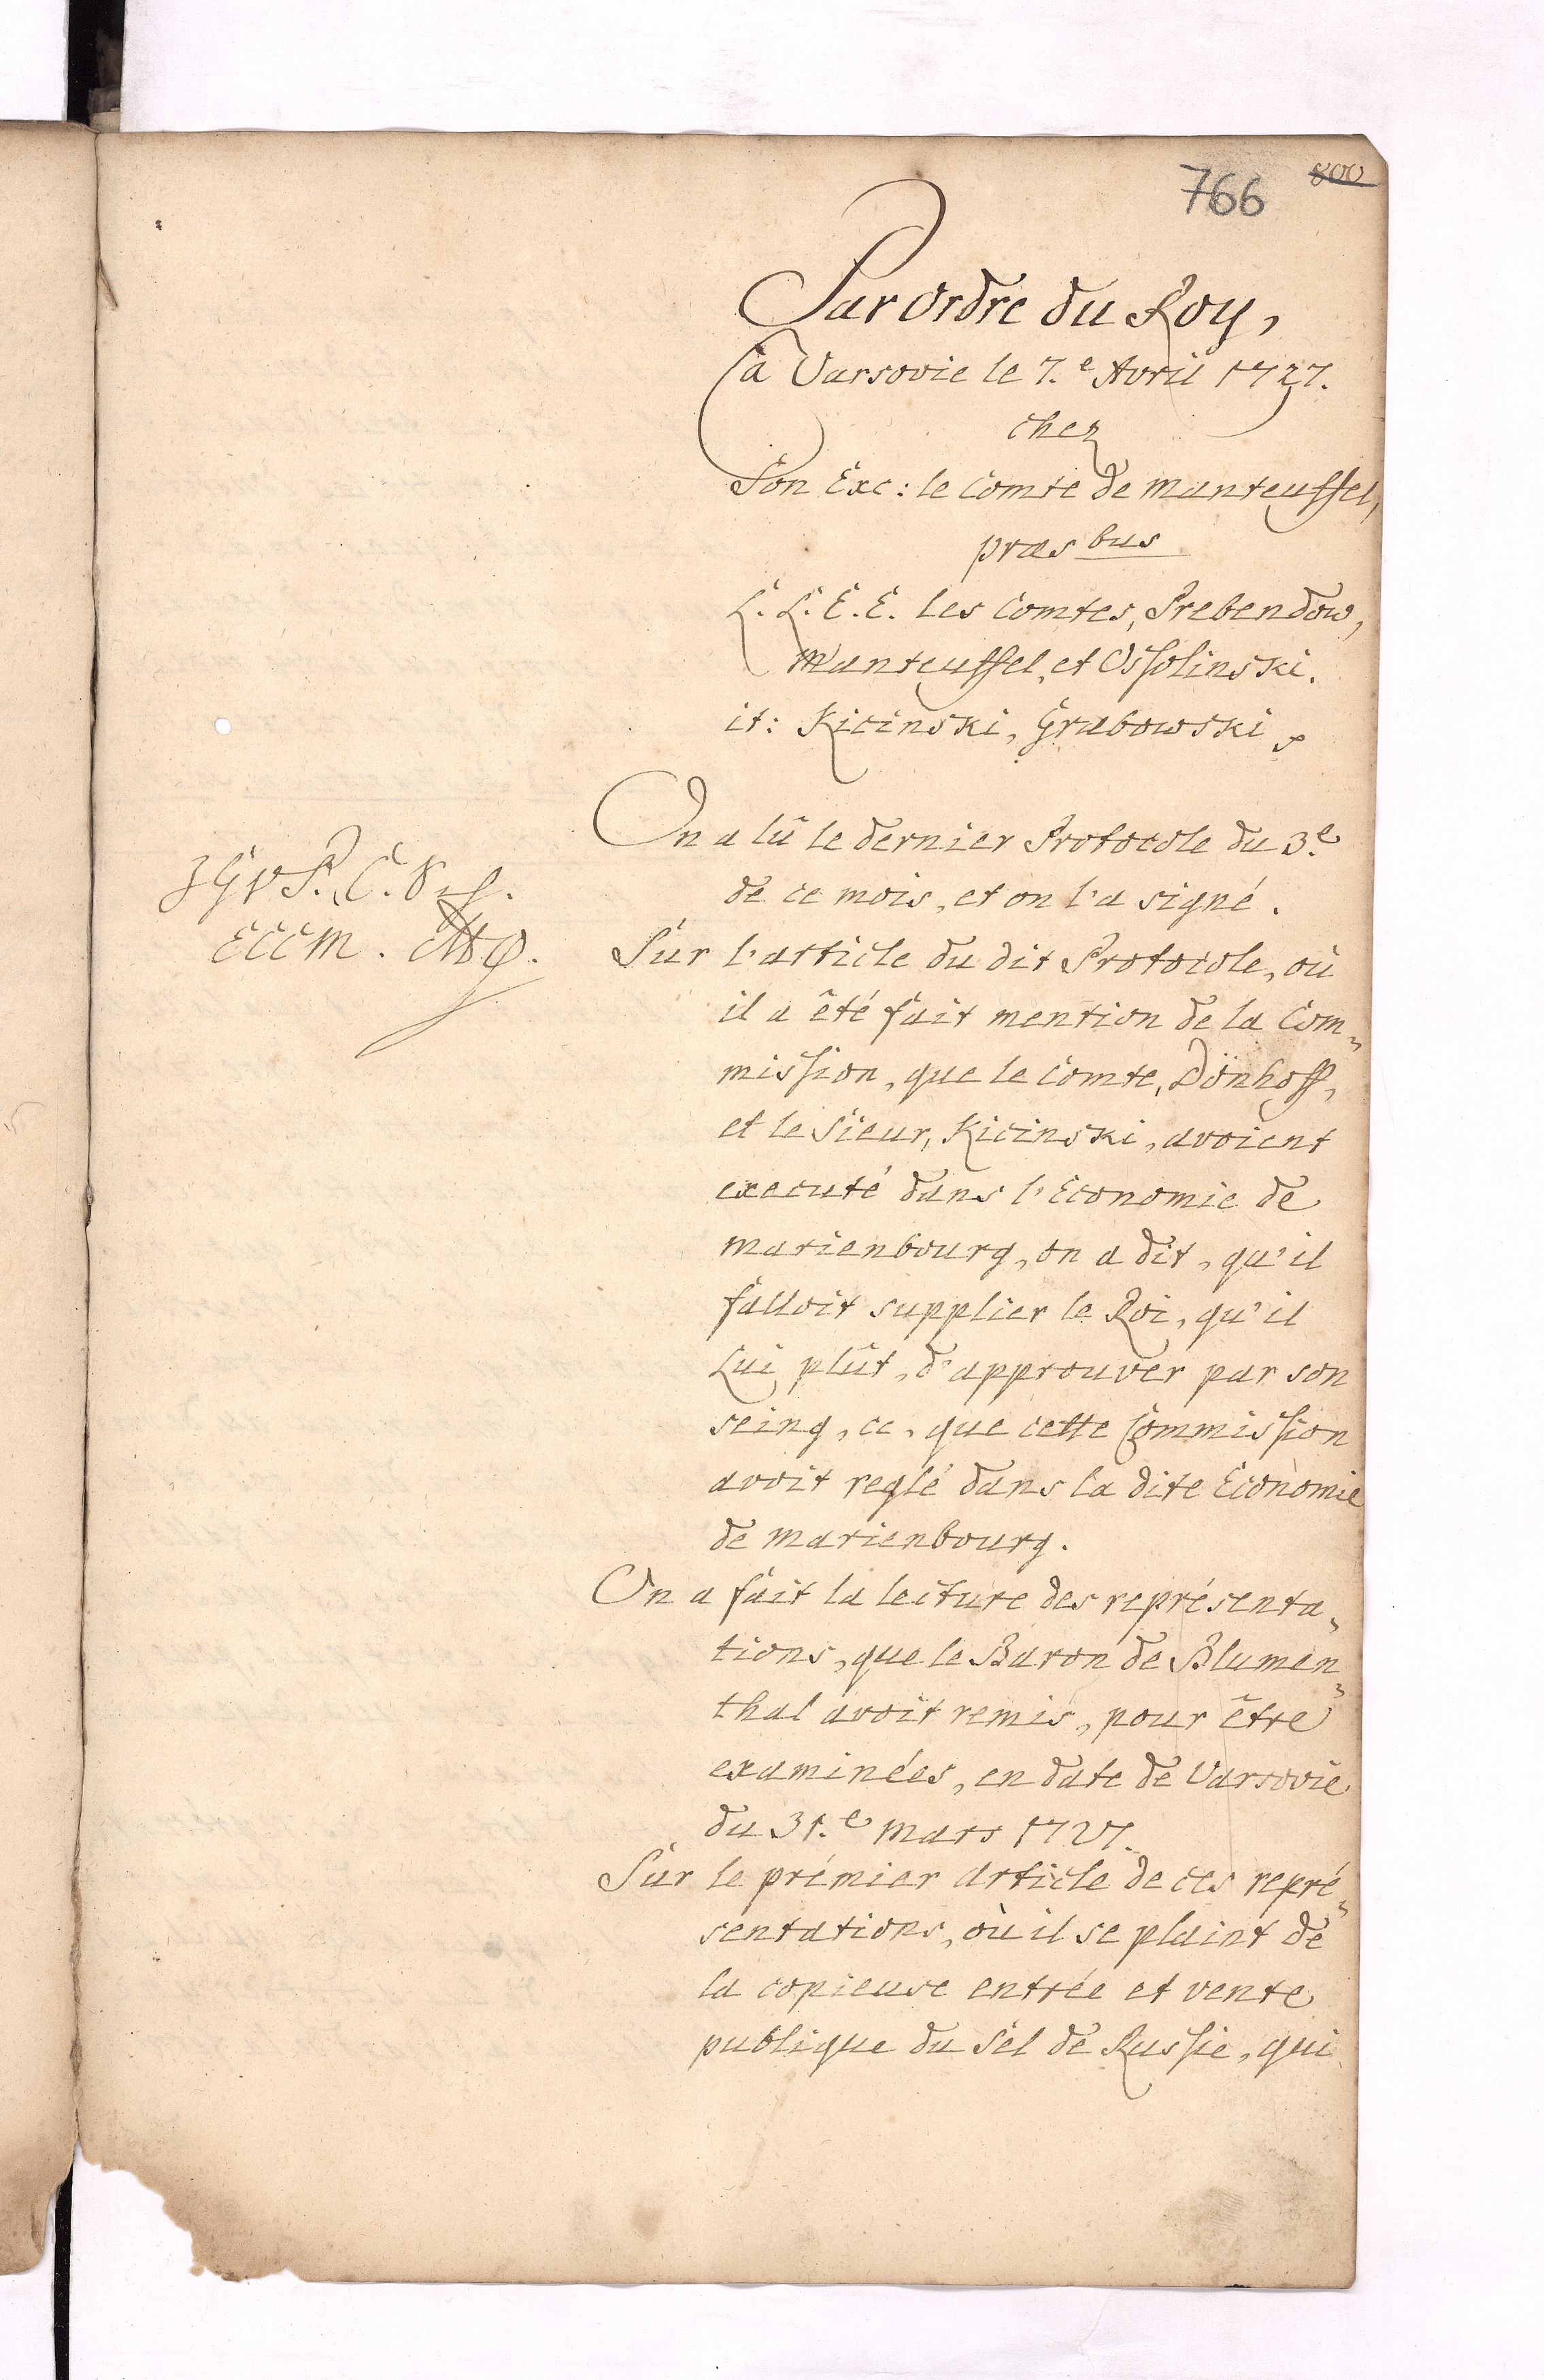 766 800
Par Ordre du Roy,
à Varsovie le 7.e Avril 1727.
chez
Son Exc: le Comte de Manteuffel,
præs bus
L. L. E. E. les Comtes, Prebendow,
Manteuffel, et Ossolinski.
it: Kicinski, Grabowski
On a lû le dernier Protocole du 3.e
de ce mois, et on l'a signé.
Sur l'article du dit Protocole, où
il a êté fait mention de la Com„
mission, que le Comte, Dönhoff,
et le Sieur, Kicinski, avoient
executé dans l'Economie de
Marienbourg, on a dit, qu'il
falloit supplier le Roi, qu'il
Lui plût, d'approuver par son
seing, ce, que cette Commission
avoit reglé dans la dite Economie
de Marienbourg.
On a fait la lecture des représenta„
tions, que le Baron de Blumen„
thal avoit remis, pour être
examinées, en date de Varsovie
du 31.e Mars 1727.
Sur le prémier article de ces repré„
sentations, où il se plaint de
la copieuse entrée et vente
publique du Sel de Russie, qui